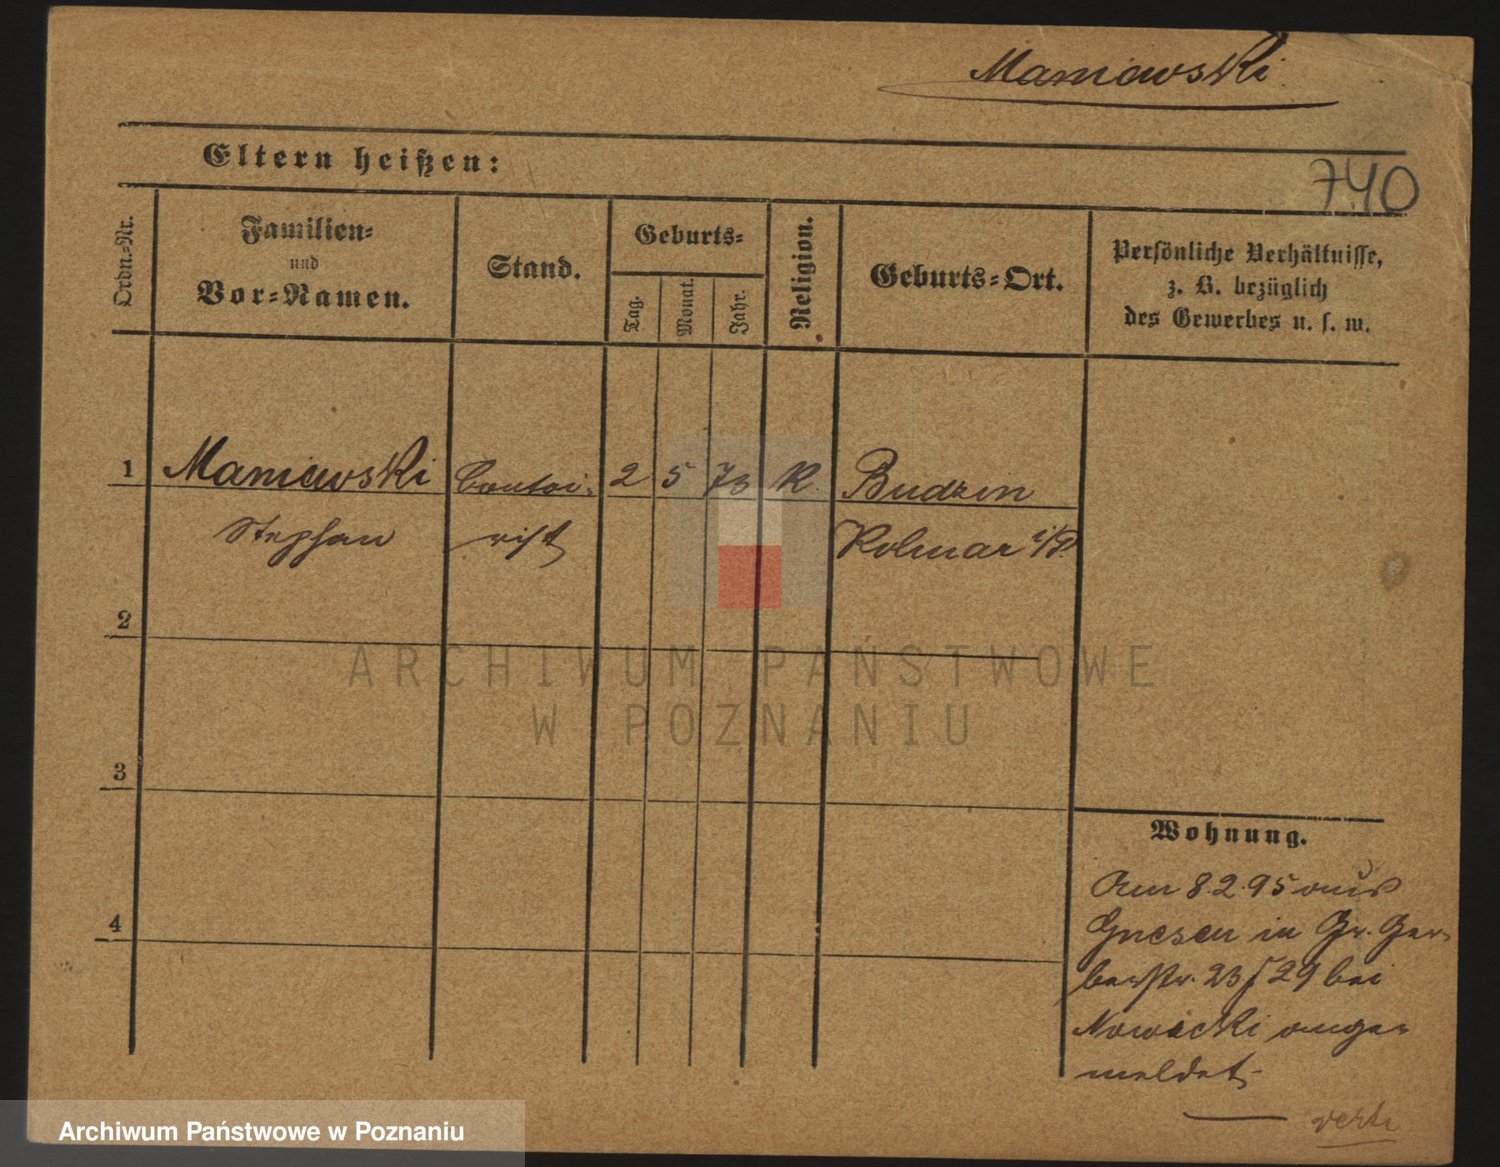 Maniewski
740
Eltern heißen:
Ordn.-Nr.
Familien-
und
Vor-Namen.
Stand.
Geburts-
Tag.
Monat.
Jahr.
Religion.
Geburts-Ort.
Persönliche Verhältnisse,
z. B. bezüglich
des Gewerbes u. s. w.
1 Maniewski Contoi- 2 5 73 K. Budzin
Stephan rist Kolmar i/P.
2
3
4
Wohnung.
Am 8.2.95 aus
Gnesen in Gr. Ger-
berstr. 23/29 bei
Nowacki ange-
meldet
verte
ARCHIWUM PAŃSTWOWE
W POZNANIU
Archiwum Państwowe w Poznaniu